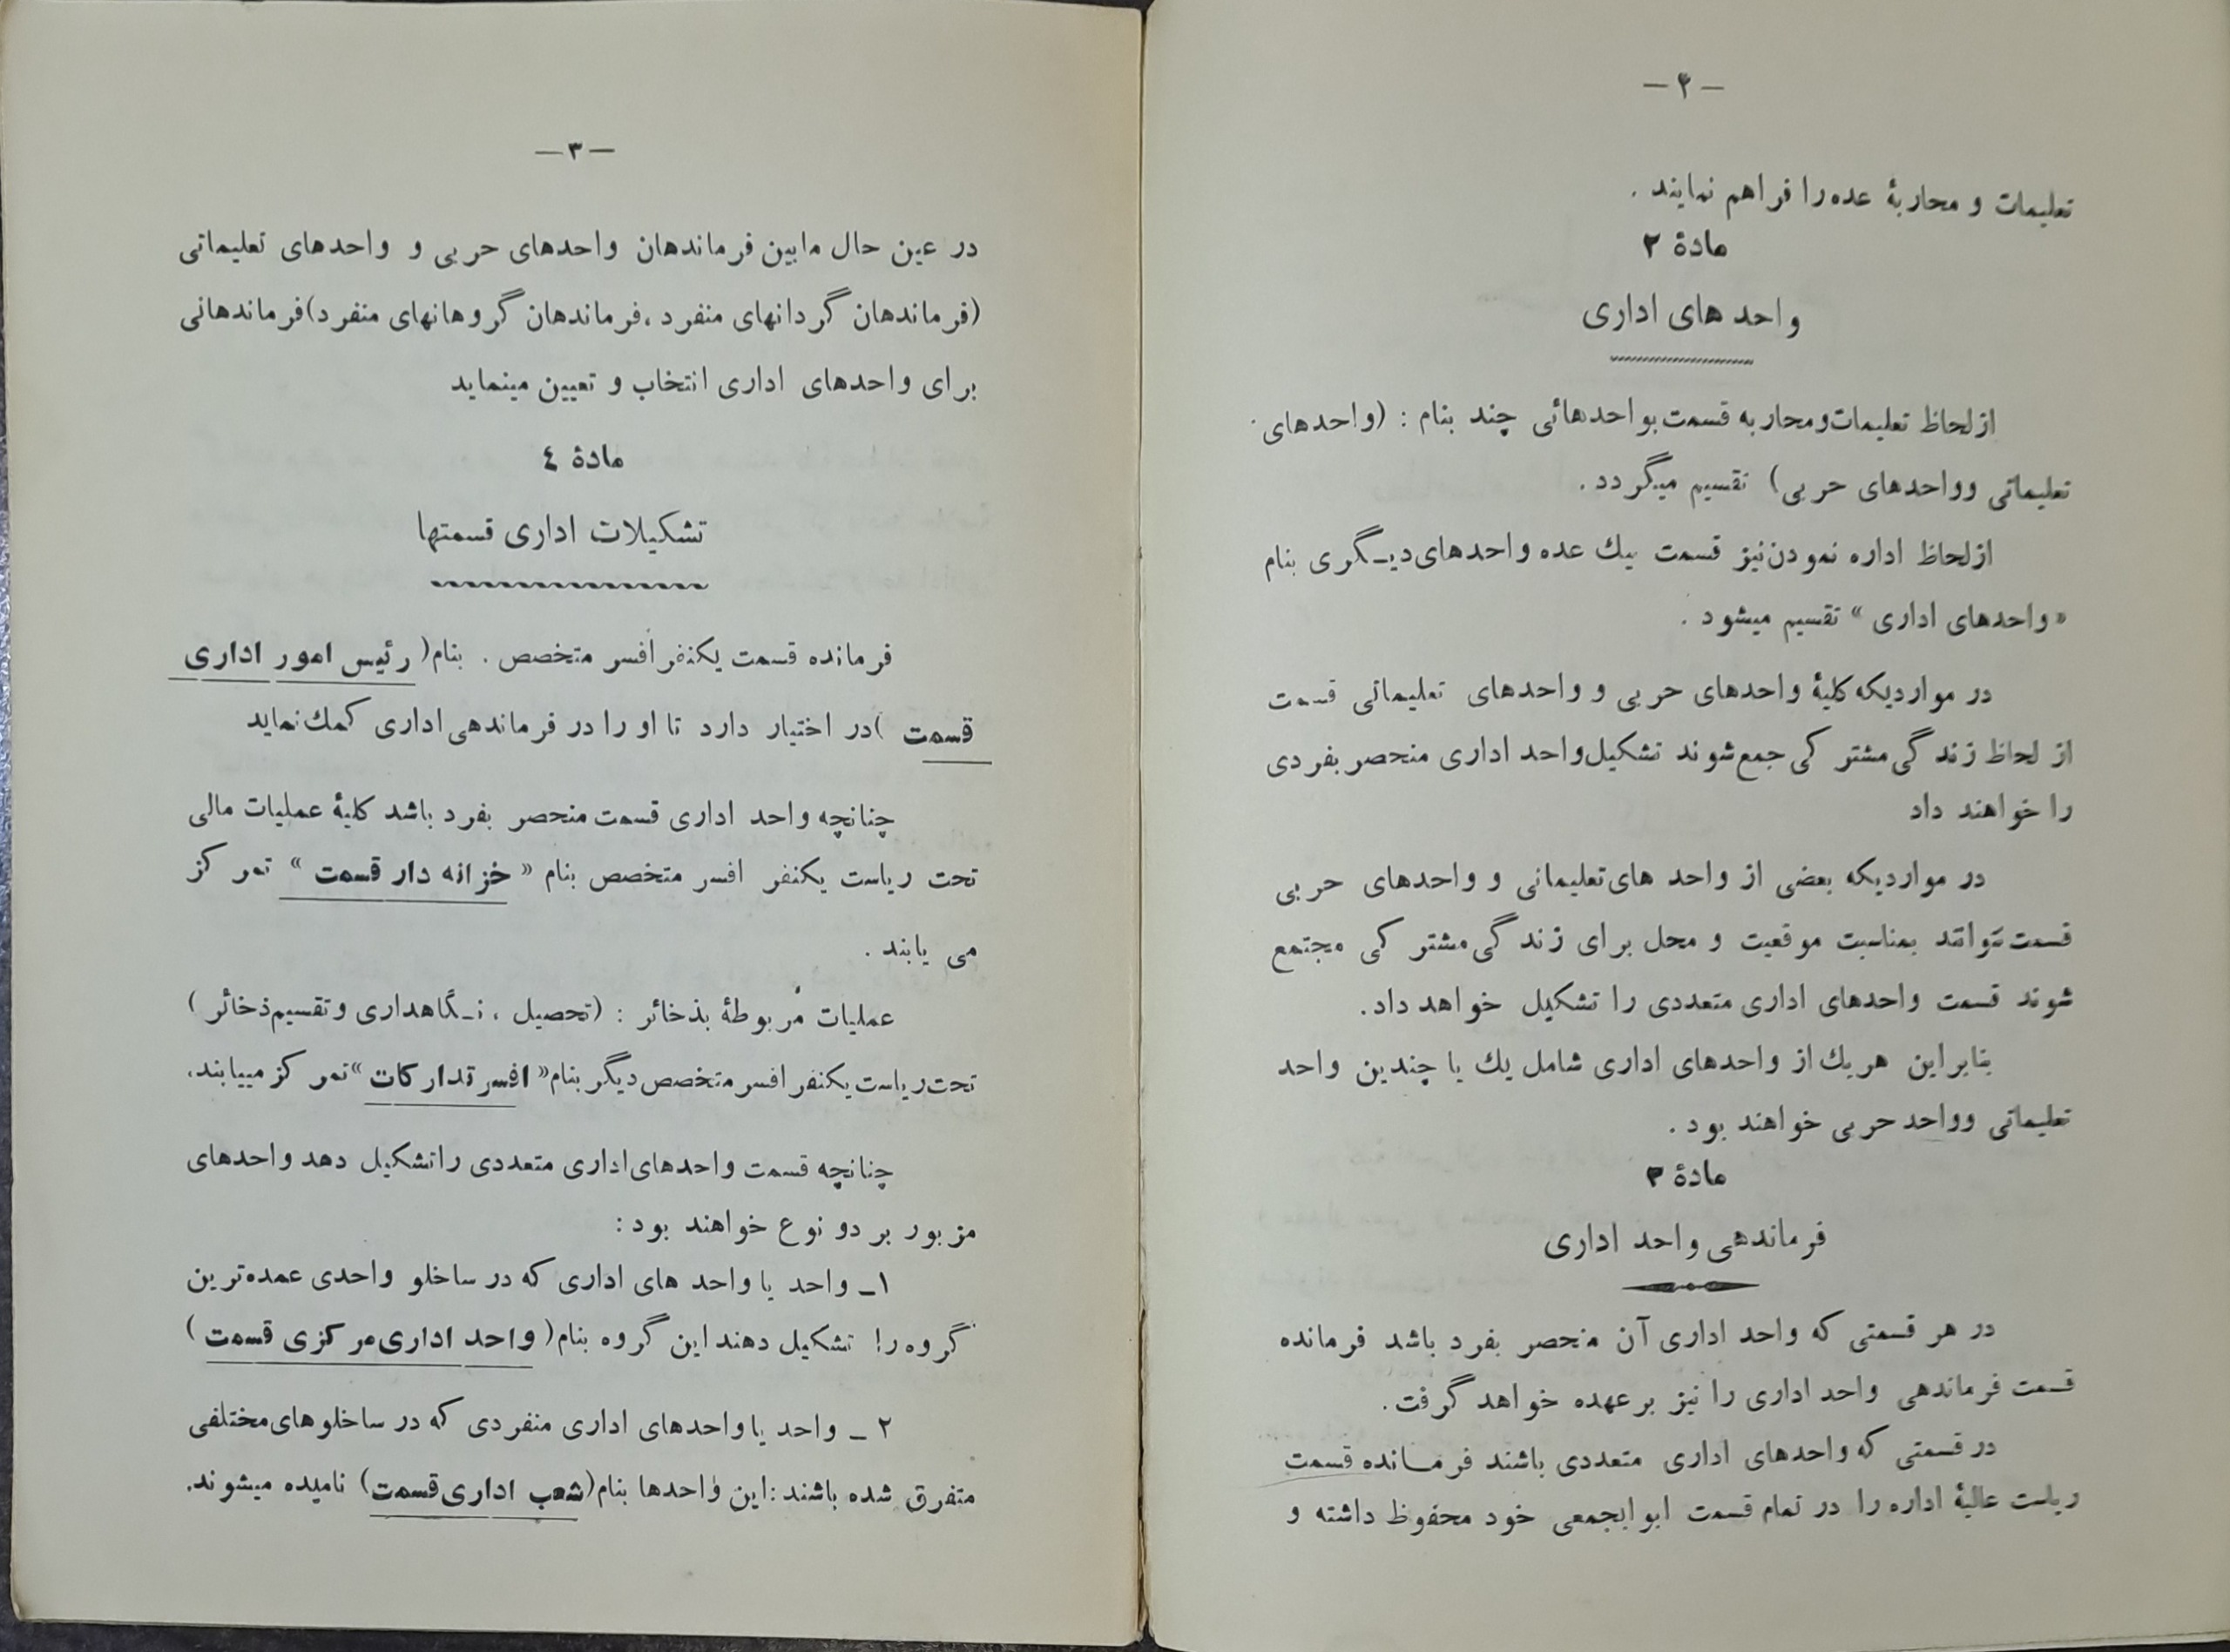 ـ ۲ ـ
تعلیمات و محاربهٔ عده را فراهم نمایند .
مادهٔ ۲
واحد های اداری
از لحاظ تعلیمات و محاربه قسمت بواحدهائی چند بنام : (واحدهای
تعلیماتی وواحدهای حربی) تقسیم میگردد .
از لحاظ اداره نمودن نیز قسمت بیك عده واحدهای دیـگری بنام
« واحدهای اداری » تقسیم میشود .
در مواردیکه کلیهٔ واحدهای حربی و واحدهای تعلیماتی قسمت
از لحاظ زندگی مشترکی جمع شوند تشکیل واحد اداری منحصر بفردی
را خواهند داد
در مواردیکه بعضی از واحد های تعلیماتی و واحدهای حربی
قسمت بتوانند بمناسبت موقعیت و محل برای زندگی مشترکی مجتمع
شوند قسمت واحدهای اداری متعددی را تشکیل خواهد داد.
بنابراین هریك از واحدهای اداری شامل یك یا چندین واحد
تعلیماتی وواحد حربی خواهند بود .
مادهٔ ۳
فرماندهی واحد اداری
در هر قسمتی که واحد اداری آن منحصر بفرد باشد فرمانده
قسمت فرماندهی واحد اداری را نیز برعهده خواهد گرفت.
در قسمتی که واحدهای اداری متعددی باشند فرمـانده قسمت
ریاست عالیهٔ اداره را در تمام قسمت ابوابجمعی خود محفوظ داشته و
ـ ۳ ـ
در عین حال مابین فرماندهان واحدهای حربی و واحدهای تعلیماتی
(فرماندهان گردانهای منفرد ، فرماندهان گروهانهای منفرد) فرماندهانی
برای واحدهای اداری انتخاب و تعیین مینماید
مادهٔ ٤
تشکیلات اداری قسمتها
فرمانده قسمت یکنفر افسر متخصص . بنام( رئیس امور اداری
قسمت )در اختیار دارد تا او را در فرماندهی اداری کمك نماید
چنانچه واحد اداری قسمت منحصر بفرد باشد کلیهٔ عملیات مالی
تحت ریاست یکنفر افسر متخصص بنام « خزانه دار قسمت » تمرکز
می یابند .
عملیات مربوطهٔ بذخائر : (تحصیل ، نـگاهداری و تقسیم ذخائر )
تحت ریاست یکنفر افسر متخصص دیگر بنام« افسر تدارکات »تمرکز مییابند.
چنانچه قسمت واحدهای اداری متعددی را تشکیل دهد واحدهای
مزبور بر دو نوع خواهند بود :
۱ـ واحد یا واحد های اداری که در ساخلو واحدی عمده ترین
گروه را تشکیل دهند این گروه بنام( واحد اداری مرکزی قسمت )
۲ ـ واحد یا واحدهای اداری منفردی که در ساخلوهای مختلفی
متفرق شده باشند : این واحدها بنام (شعب اداری قسمت) نامیده میشوند.